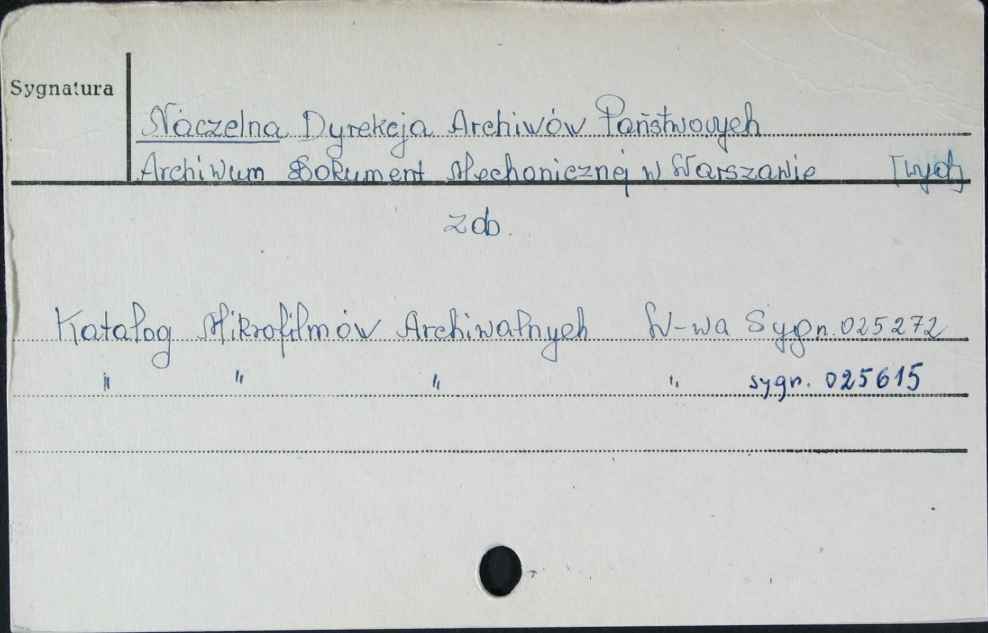 Sygnatura
Naczelna Dyrekcja Archiwów Państwowych
Archiwum Dokument Mechanicznej w Warszawie [wyd]
zob.
Katalog Mikrofilmów Archiwalnych W-wa Sygn. 025272
" " " " sygn. 025615